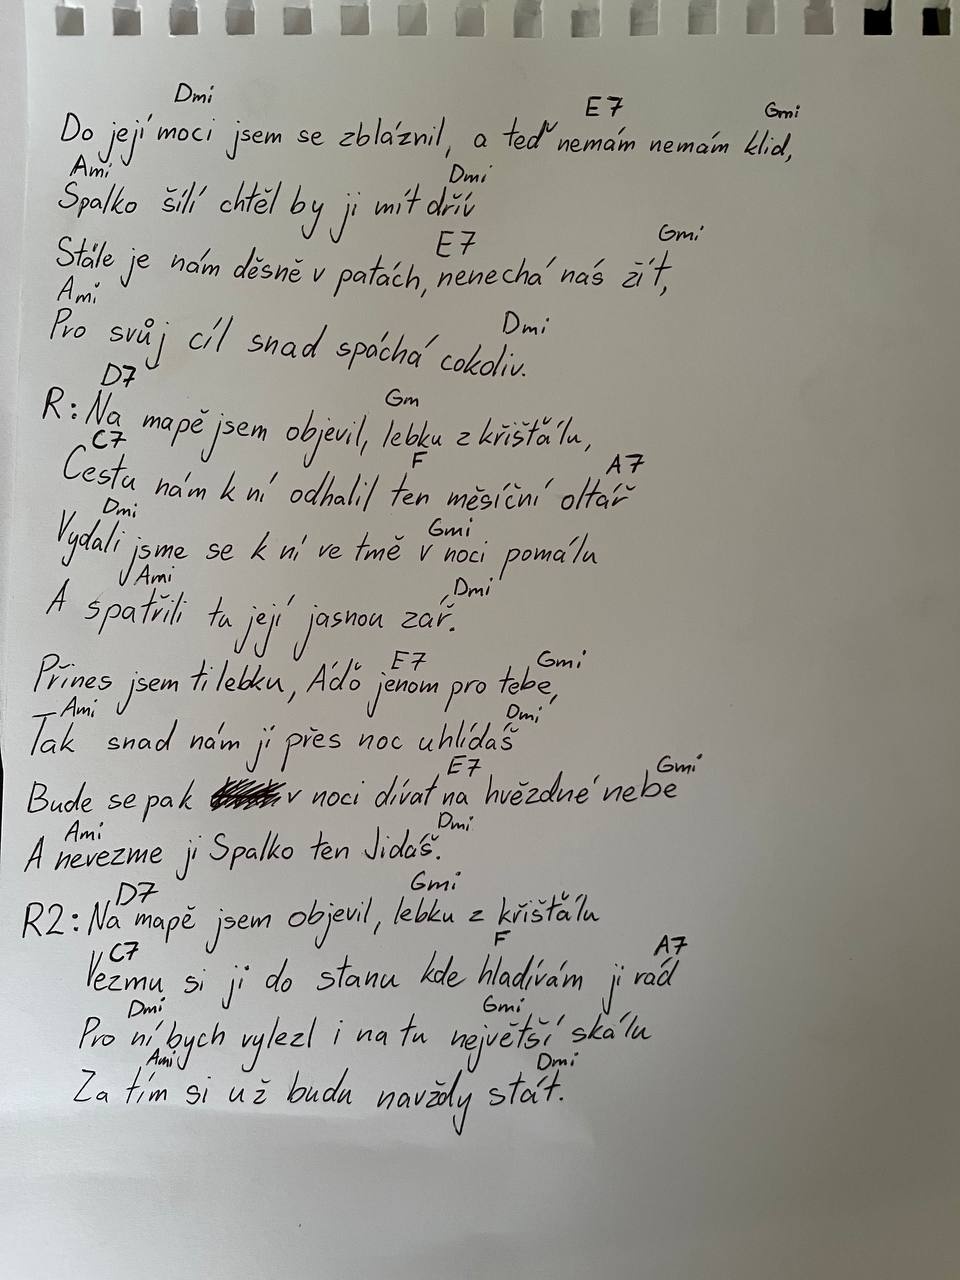 Dmi E7 Gmi
Do její moci jsem se zbláznil, a teď nemám nemám klid,
Ami Dmi
Spalko šílí chtěl by ji mít dřív
E7 Gmi
Stále je nám děsně v patách, nenechá nás žít,
Ami Dmi
Pro svůj cíl snad spáchá cokoliv.
D7 Gm
R: Na mapě jsem objevil, lebku z křišťálu,
C7 F A7
Cestu nám k ní odhalil ten měsíční oltář
Dmi Gmi
Vydali jsme se k ní ve tmě v noci pomálu
Ami Dmi
A spatřili tu její jasnou zář.
E7 Gmi
Přines jsem ti lebku, Áďo jenom pro tebe,
Ami Dmi
Tak snad nám jí přes noc uhlídáš
E7 Gmi
Bude se pak v noci dívat na hvězdné nebe
Ami Dmi
A nevezme ji Spalko ten Jidáš.
D7 Gmi
R2: Na mapě jsem objevil, lebku z křišťálu
C7 F A7
Vezmu si ji do stanu kde hladívám ji rád
Dmi Gmi
Pro ní bych vylezl i na tu největší skálu
Ami Dmi
Za tím si už budu navždy stát.